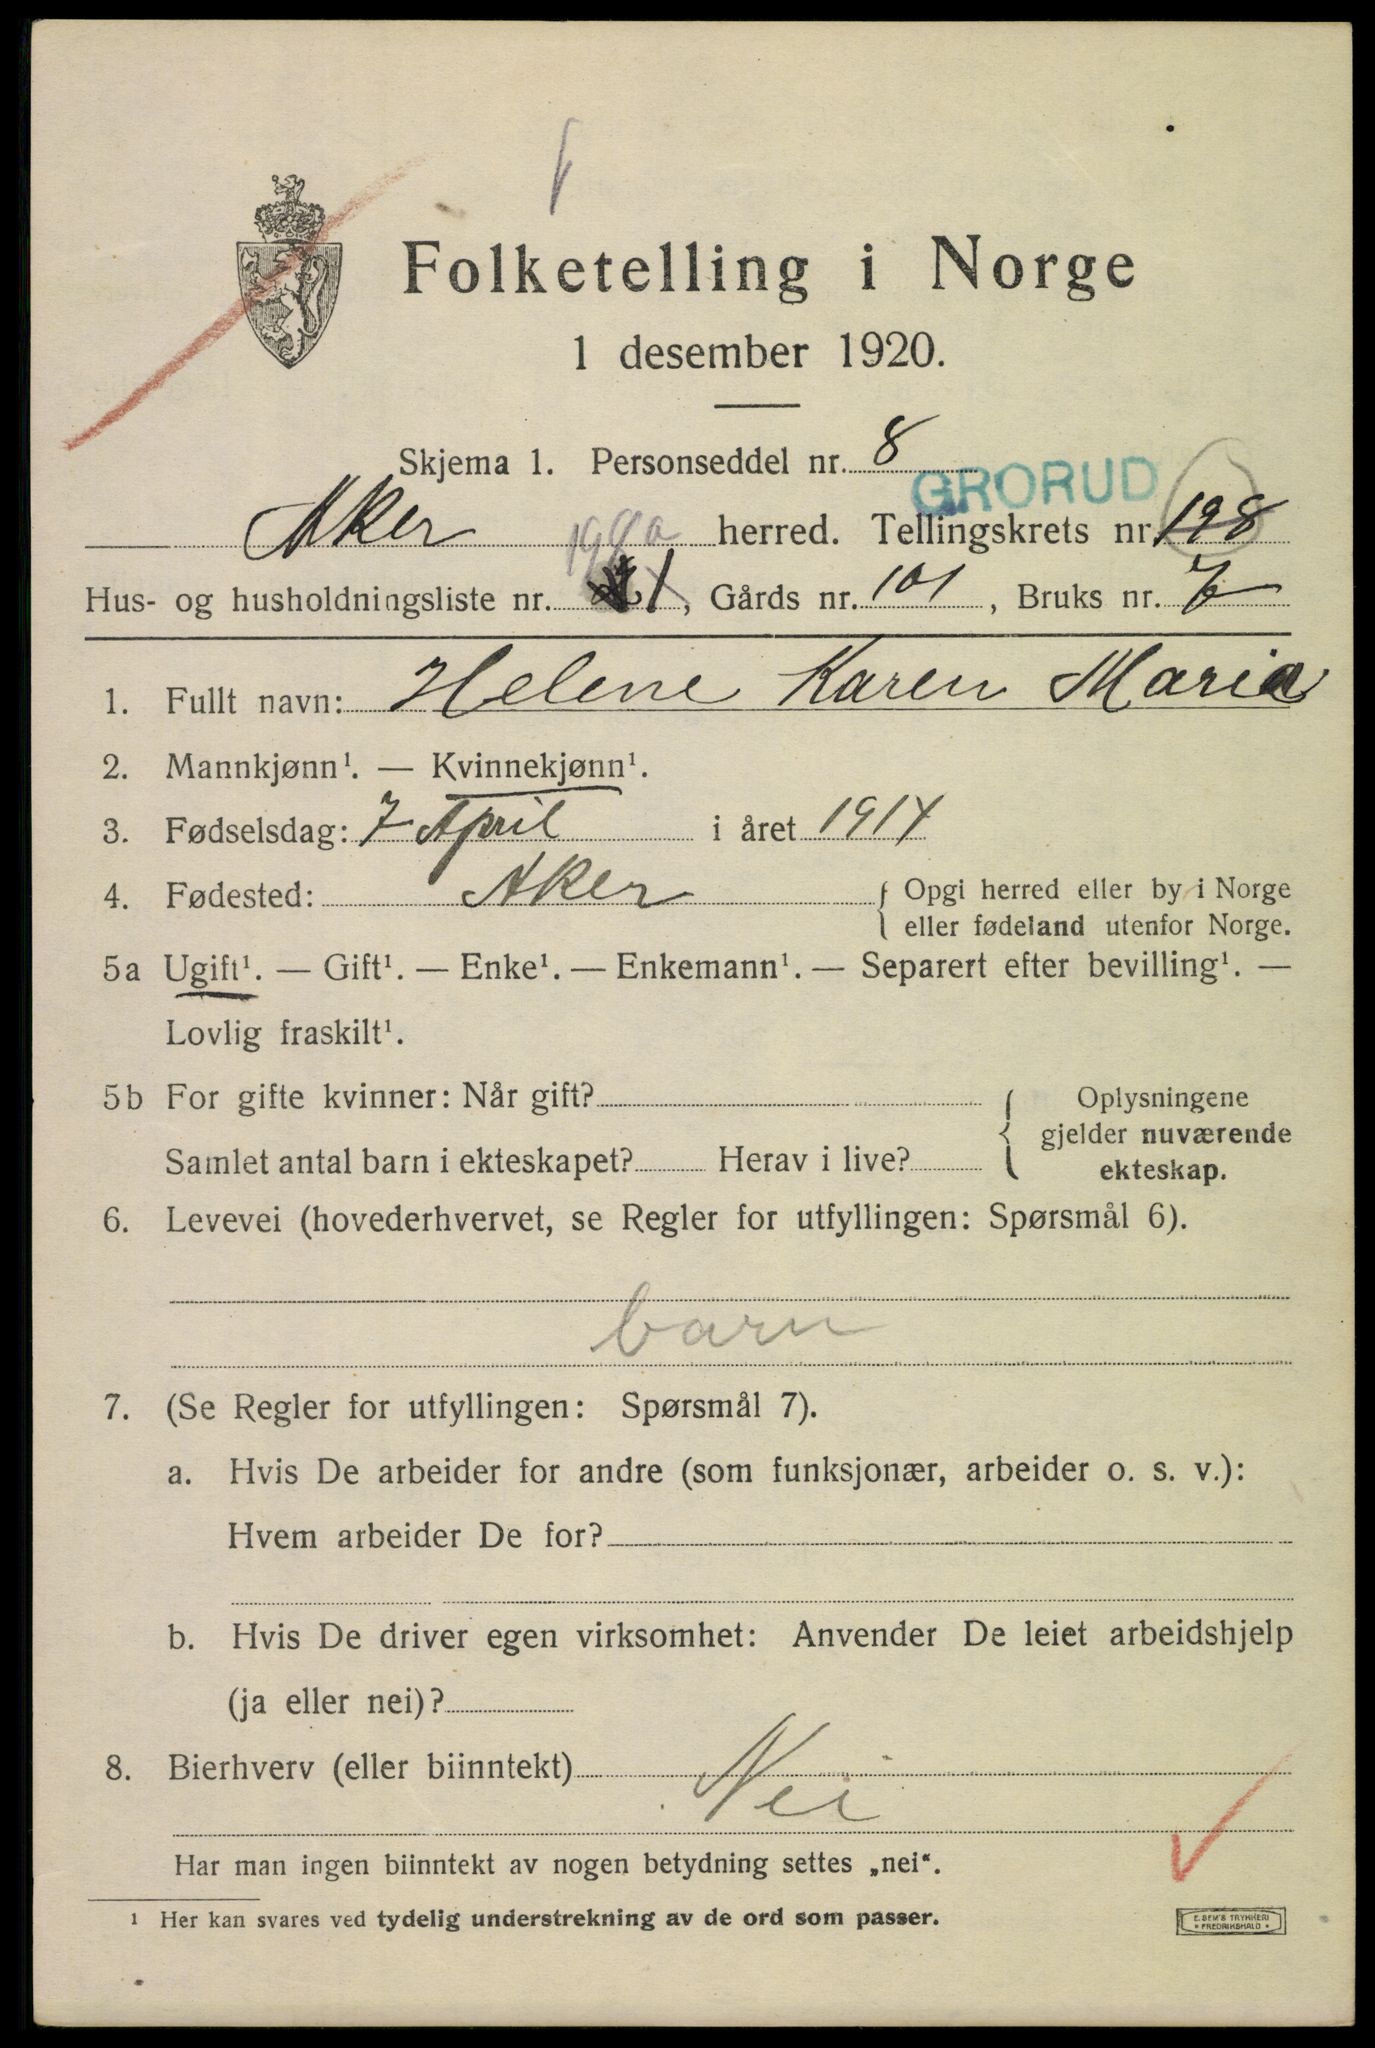 Folketelling i Norge
1 desember 1920.
Skjema 1. Personseddel nr. 8
GRORUD
Aker herred. Tellingskrets nr. 198
198a
Hus- og husholdningsliste nr. 1, Gårds nr. 101, Bruks nr. 7
1. Fullt navn: Helene Karen Maria
2. Mannkjønn¹. — Kvinnekjønn¹.
3. Fødselsdag: 7 April i året 1914
4. Fødested: Aker { Opgi herred eller by i Norge
eller fødeland utenfor Norge.
5a Ugift¹. — Gift¹. — Enke¹. — Enkemann¹. — Separert efter bevilling¹. —
Lovlig fraskilt¹.
5b For gifte kvinner: Når gift? { Oplysningene
gjelder nuværende
Samlet antal barn i ekteskapet? Herav i live? ekteskap.
6. Levevei (hovederhvervet, se Regler for utfyllingen: Spørsmål 6).
barn
7. (Se Regler for utfyllingen: Spørsmål 7).
a. Hvis De arbeider for andre (som funksjonær, arbeider o. s. v.):
Hvem arbeider De for?
b. Hvis De driver egen virksomhet: Anvender De leiet arbeidshjelp
(ja eller nei)?
8. Bierhverv (eller biinntekt)
Nei
Har man ingen biinntekt av nogen betydning settes „nei“.
¹ Her kan svares ved tydelig understrekning av de ord som passer.
E. SEM'S TRYKKERI
* FREDRIKSHALD *